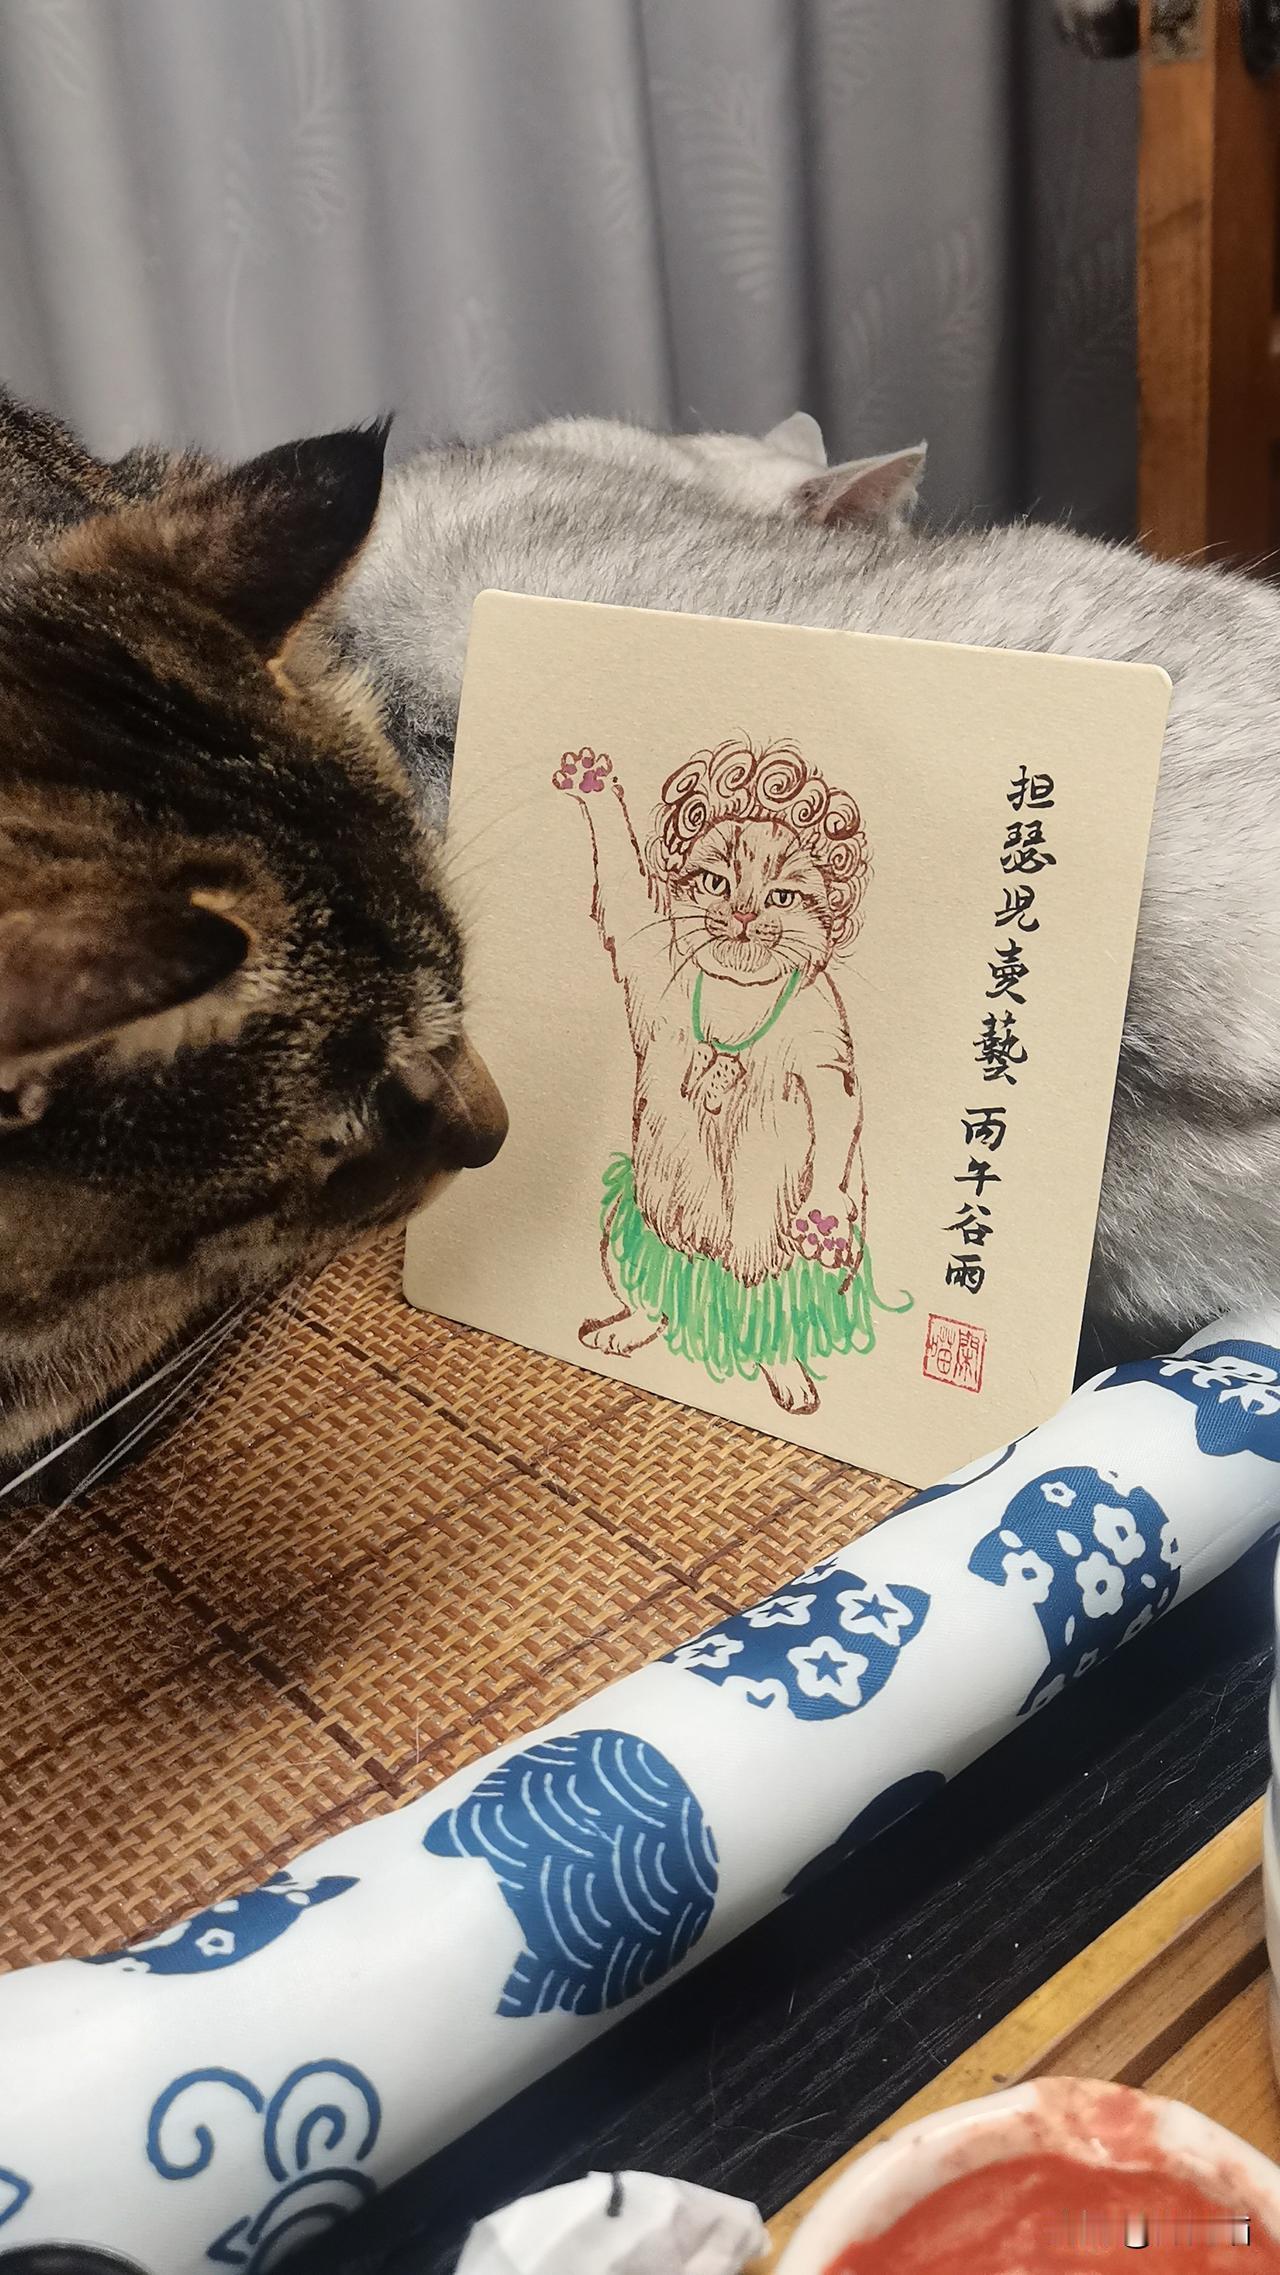 担瑟児賣藝 丙午谷雨
閑喵